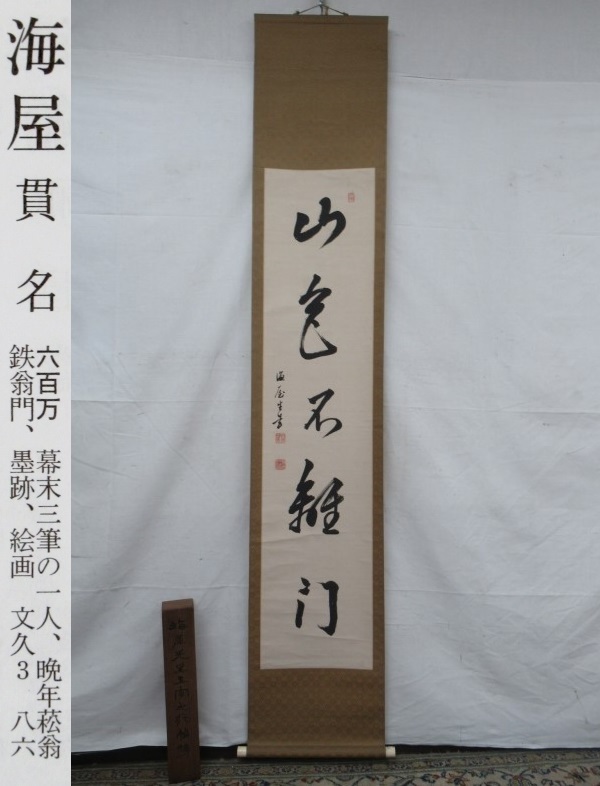 海屋 貫名
六百万 幕末三筆の一人、晩年菘翁
鉄翁門、墨跡、絵画 文久3 八六
山色不離門
海屋生書